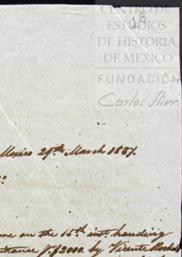 18
CENTRO DE
ESTUDIOS
DE HISTORIA
DE MEXICO
FUNDACIÓN
Carlos Slim
Mexico 29th March 1837.
me on the 15th inst. handing
$2000. by Vicente